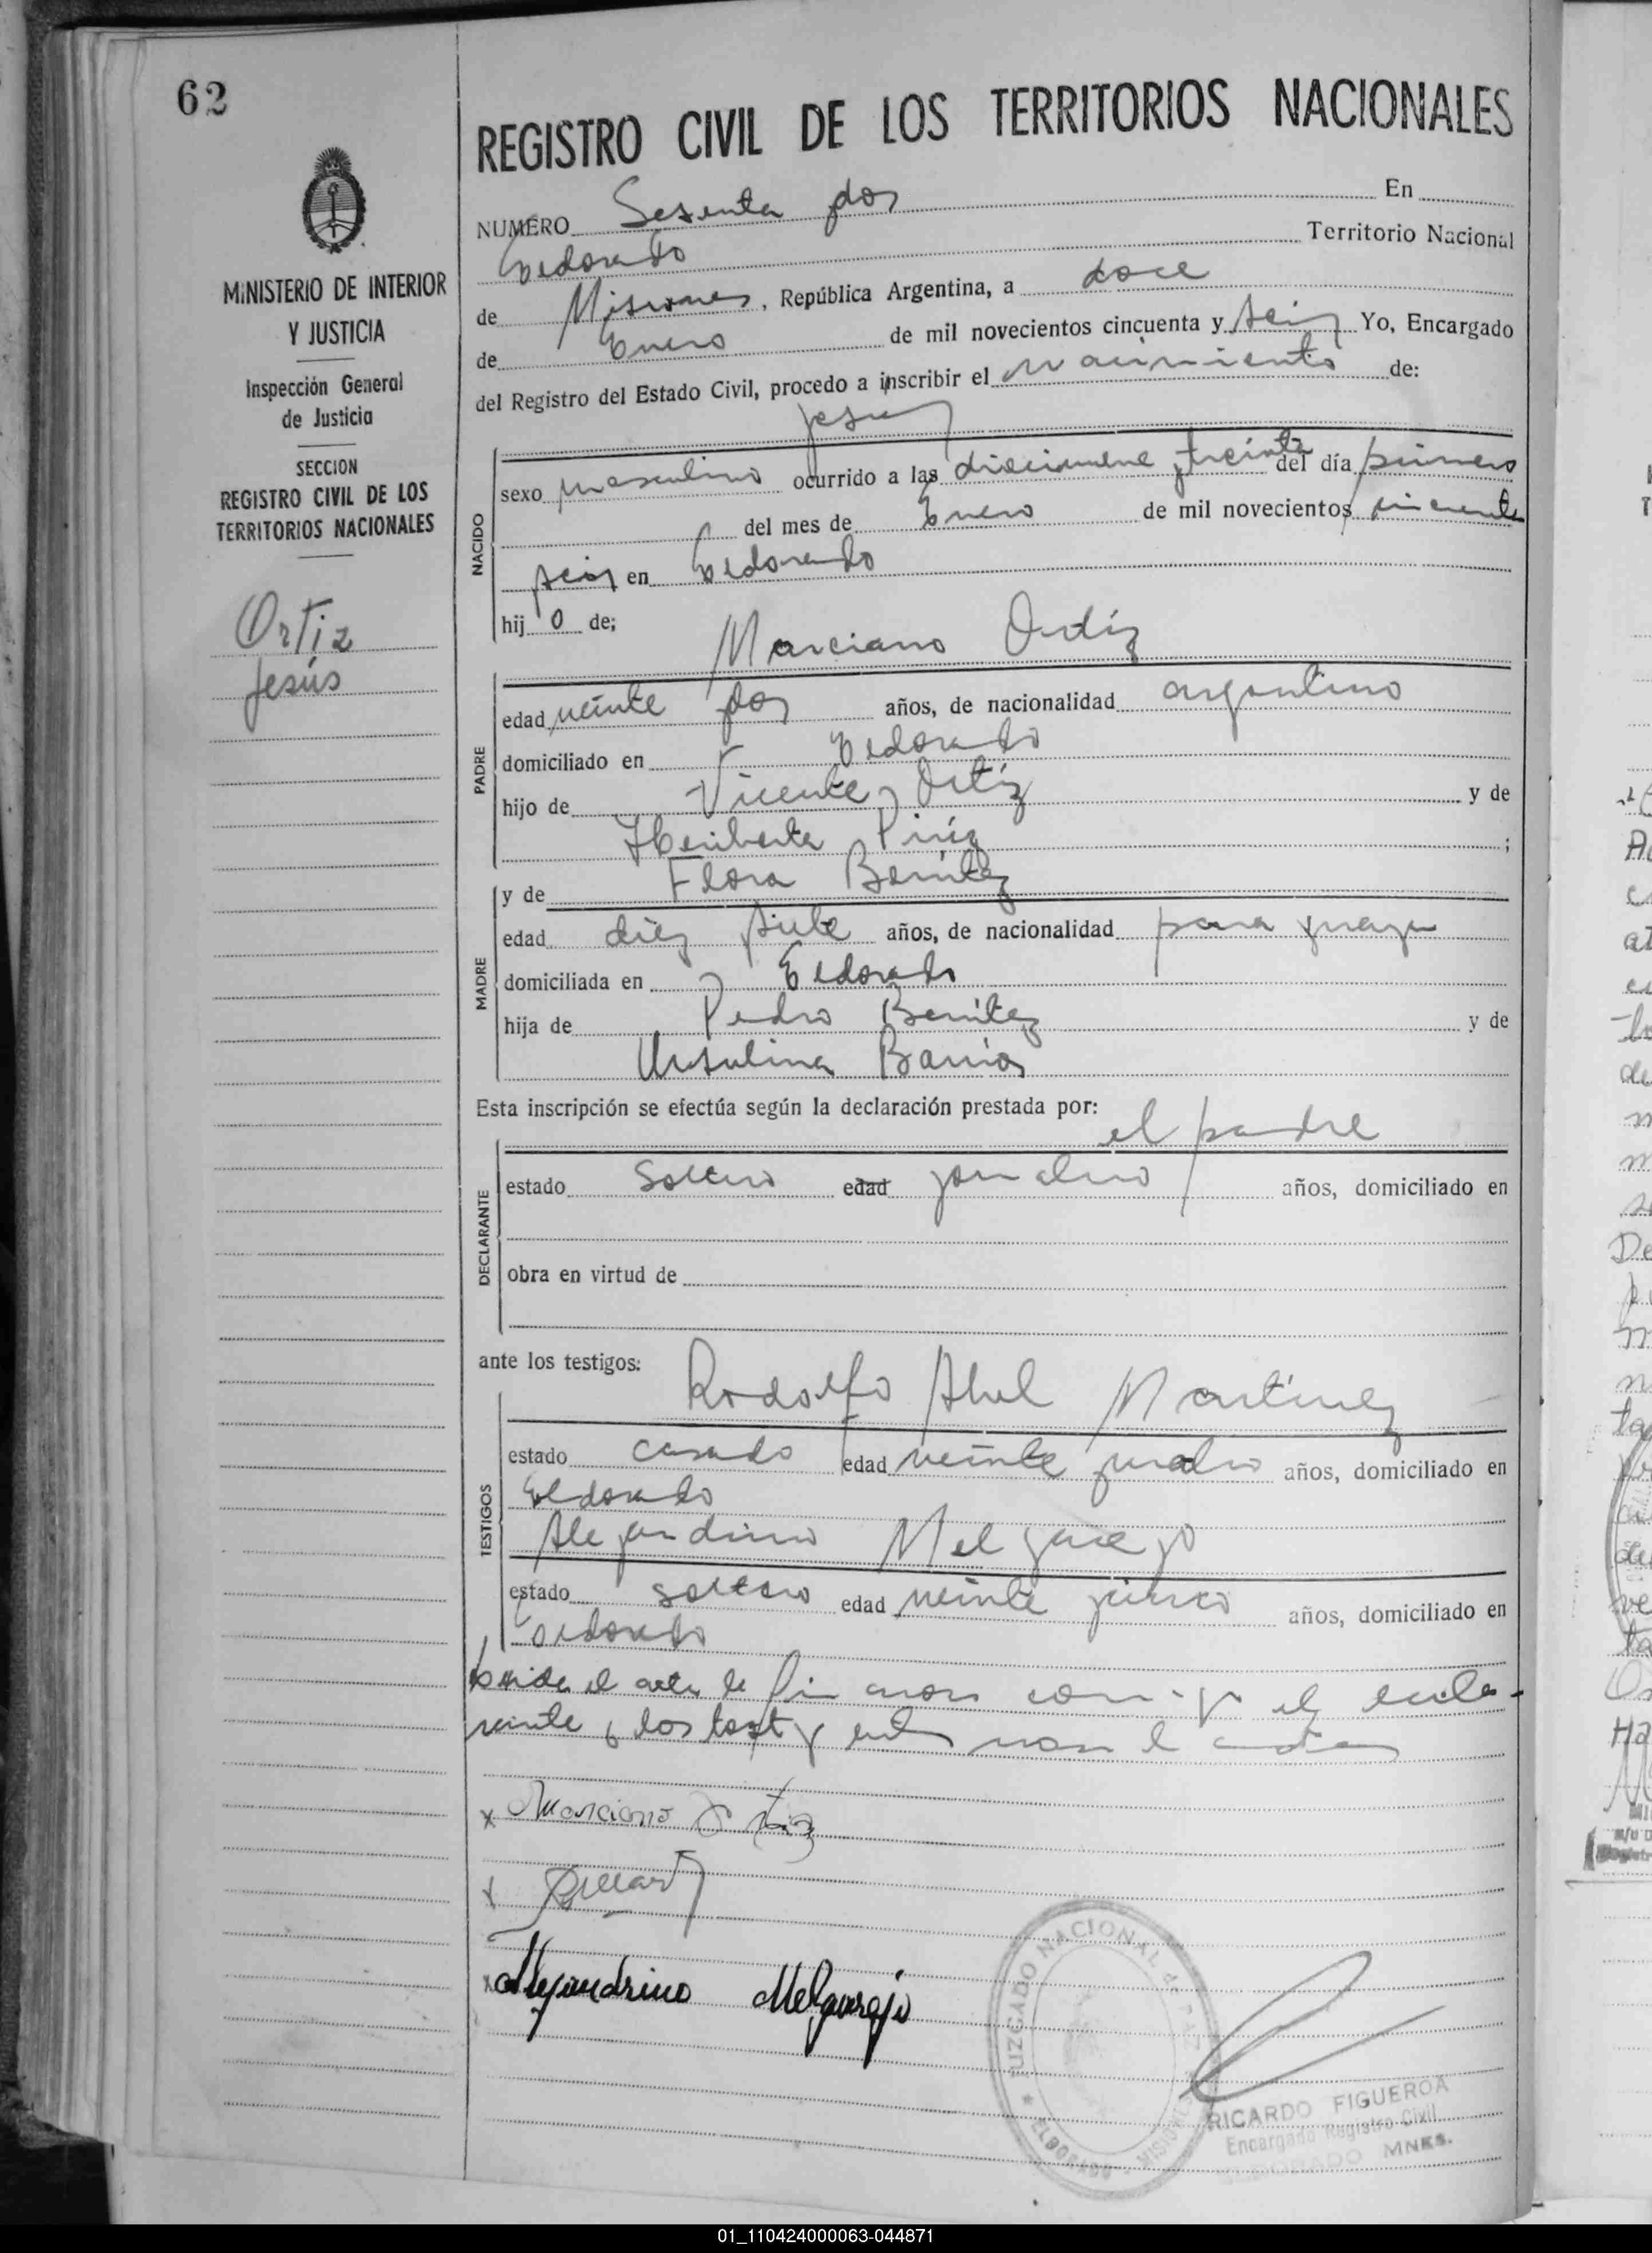 62
MINISTERIO DE INTERIOR
Y JUSTICIA
Inspección General
de Justicia
SECCION
REGISTRO CIVIL DE LOS
TERRITORIOS NACIONALES
Ortiz
Jesús
REGISTRO CIVIL DE LOS TERRITORIOS NACIONALES
NUMERO Sesenta y dos En
Eldorado Territorio Nacional
de Misiones, República Argentina, a doce
de Enero de mil novecientos cincuenta y seis Yo, Encargado
del Registro del Estado Civil, procedo a inscribir el nacimiento de:
Jesus
NACIDO
sexo masculino ocurrido a las diecinueve y treinta del día primero
del mes de Enero de mil novecientos cincuenta
y seis en Eldorado
hij o de;
Marciano Ortíz
PADRE
edad veinte y dos años, de nacionalidad argentino
domiciliado en Eldorado
hijo de Vicente Ortíz y de
Heriberta ;
y de Flora Benítez
MADRE
edad diez y siete años, de nacionalidad paraguaya
domiciliada en Eldorado
hija de Pedro Benítez y de
Ursulina Barrios
Esta inscripción se efectúa según la declaración prestada por:
el padre
DECLARANTE
estado soltero edad jornalero años, domiciliado en
obra en virtud de
ante los testigos:
Rodolfo Abel Martínez
TESTIGOS
estado casado edad veinte y cuatro años, domiciliado en
Eldorado
Alejandrino Melgarejo
estado soltero edad veinte y cinco años, domiciliado en
Eldorado
el acta la firmaron conmigo el decla-
rante y los test
x Marciano Ortiz
x
x Alejandrino Melgarejo
JUZGADO NACIONAL de PAZ
ELDORADO - MISIONES
RICARDO FIGUEROA
Encargado Registro Civil
ELDORADO MNES.
01_110424000063-044871